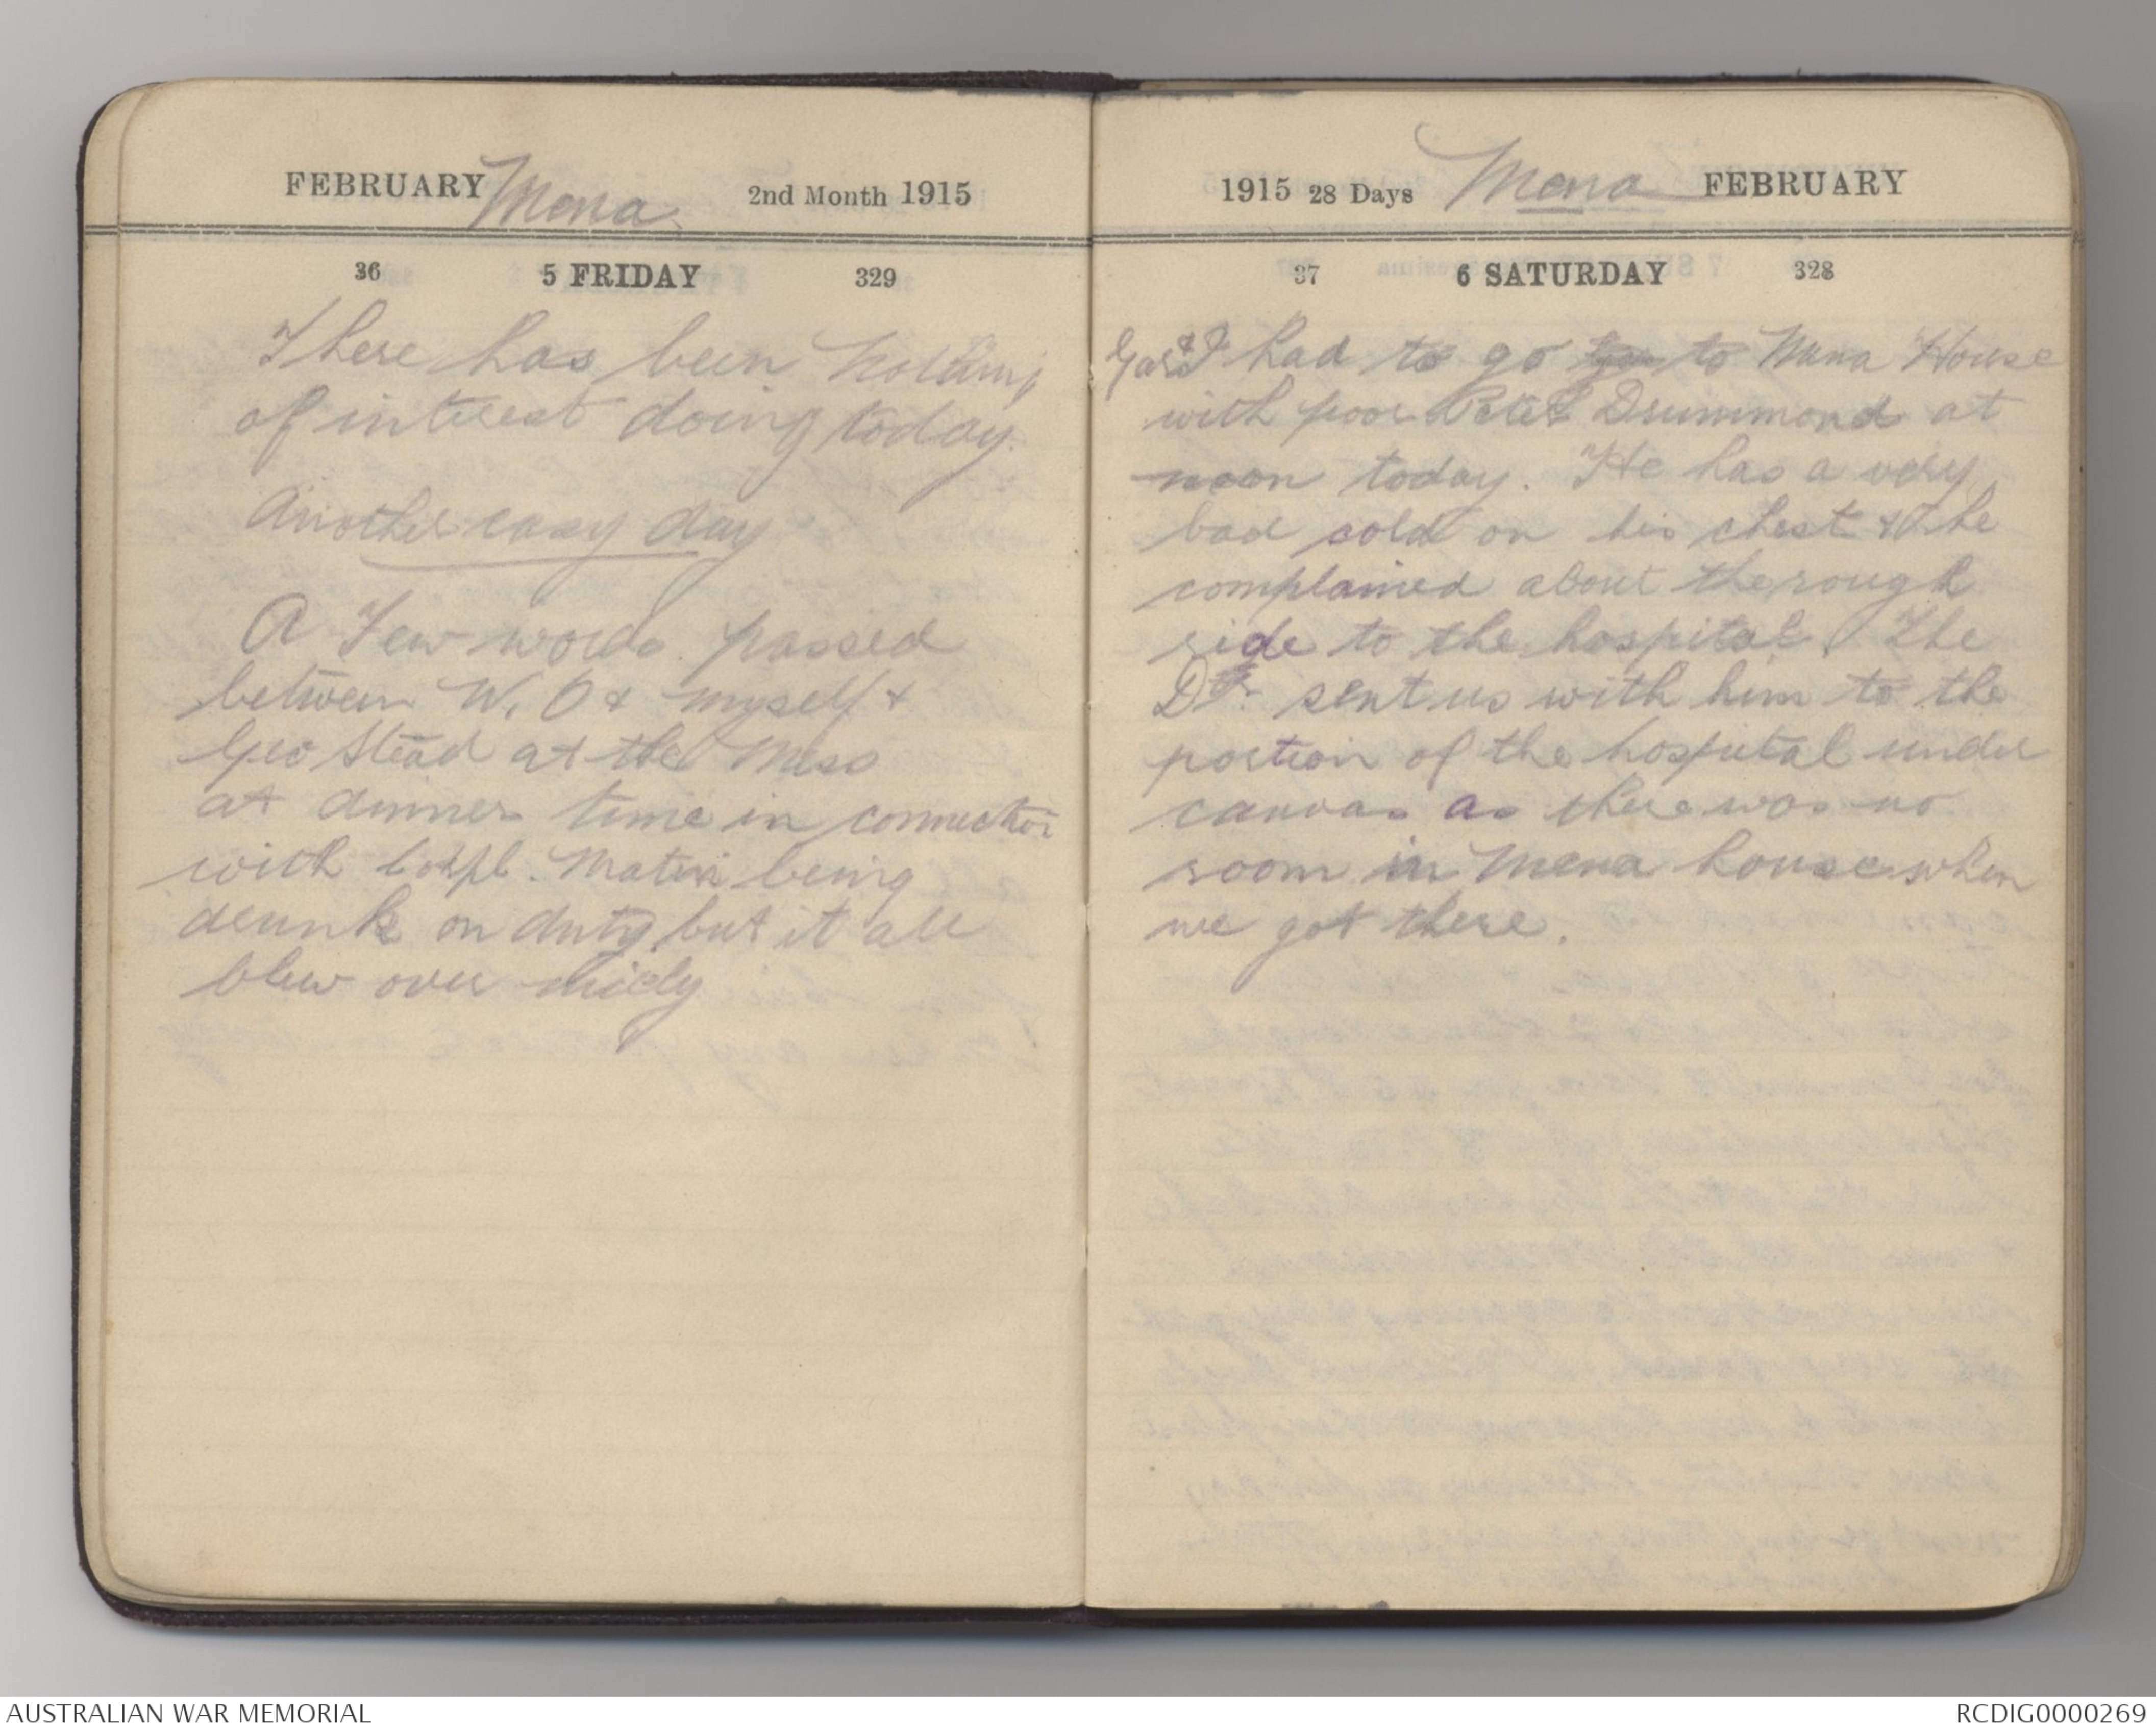 FEBRUARY Mena 2nd Month 1915
36 5 FRIDAY 329
There has been nothing
of interest doing today.
Another easy day
A Few words passed
between W. O & myself &
Geo Stead at the Mess
at dinner time in connection
with Corpl. being
drunk on duty but it all
blew over nicely
1915 28 Days Mena FEBRUARY
37 6 SATURDAY 328
& I had to go to Mena House
with poor Peter Drummond at
noon today. He has a very
bad cold on his chest & he
complained about the rough
ride to the hospital. The
Dr. sent us with him to the
portion of the hospital under
canvas as there was no
room in Mena house when
we got there.
AUSTRALIAN WAR MEMORIAL
RCDIG0000269